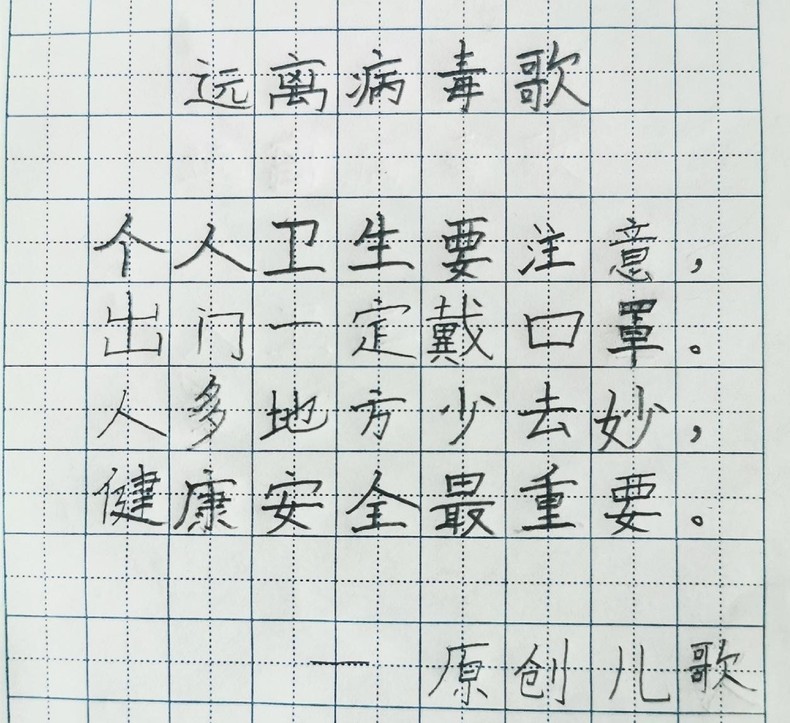 远离病毒歌
个人卫生要注意，
出门一定戴口罩。
人多地方少去妙，
健康安全最重要。
— 原创儿歌